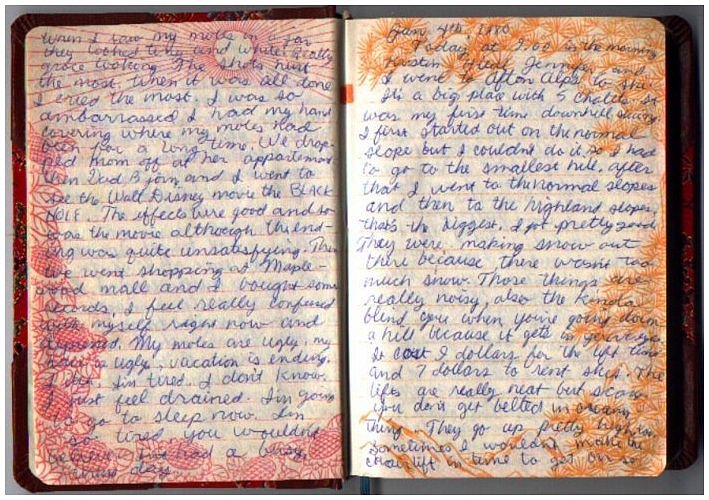 When I saw my moles in a jar
they looked tiny and white. Really
gross looking. The shots hurt
the most. When it was all done
I cried the most. I was so
embarrassed I had my hand
covering where my moles had
been for a long time. We drop-
ped mom off at her appartment
then Dad, Bjorn and I went to
see the Walt Disney movie the BLACK
HOLE. The effects were good and so
was the movie although the end-
ing was quite unsatisfying. Then
we went shopping at Maple-
wood mall and I bought some
records, I feel really confused
with myself right now and
depressed. My moles are ugly, my
hair is ugly, vacation is ending,
I'm tired. I don't know.
I just feel drained. I'm going
to go to sleep now. I'm
so tired you wouldn't
believe. I've had a busy,
day...
Jan. 4th, 1980
Today at 9:00 in the morning
Kirstin, Heidi, Jennifer, and
I went to Afton Alps to ski.
It's a big place with 5 chalets. It
was my first time downhill skiing.
I first started out on the normal
slope but I couldn't do it, so I had
to go to the smallest hill, after
that I went to the normal slopes
and then to the highland slopes,
that's the biggest. I got pretty good.
They were making snow out
there because there wasn't too
much snow. Those things are
really noisy, also the kinda
blind you when you're going down
a hill because it gets in your eyes.
It cost 9 dollars for the lift time
and 7 dollars to rent skis. The
lifts are really neat but scary
you don't get belted in or any
thing. They go up pretty high too.
Sometimes I wouldn't make the
chairlift in time to get on so